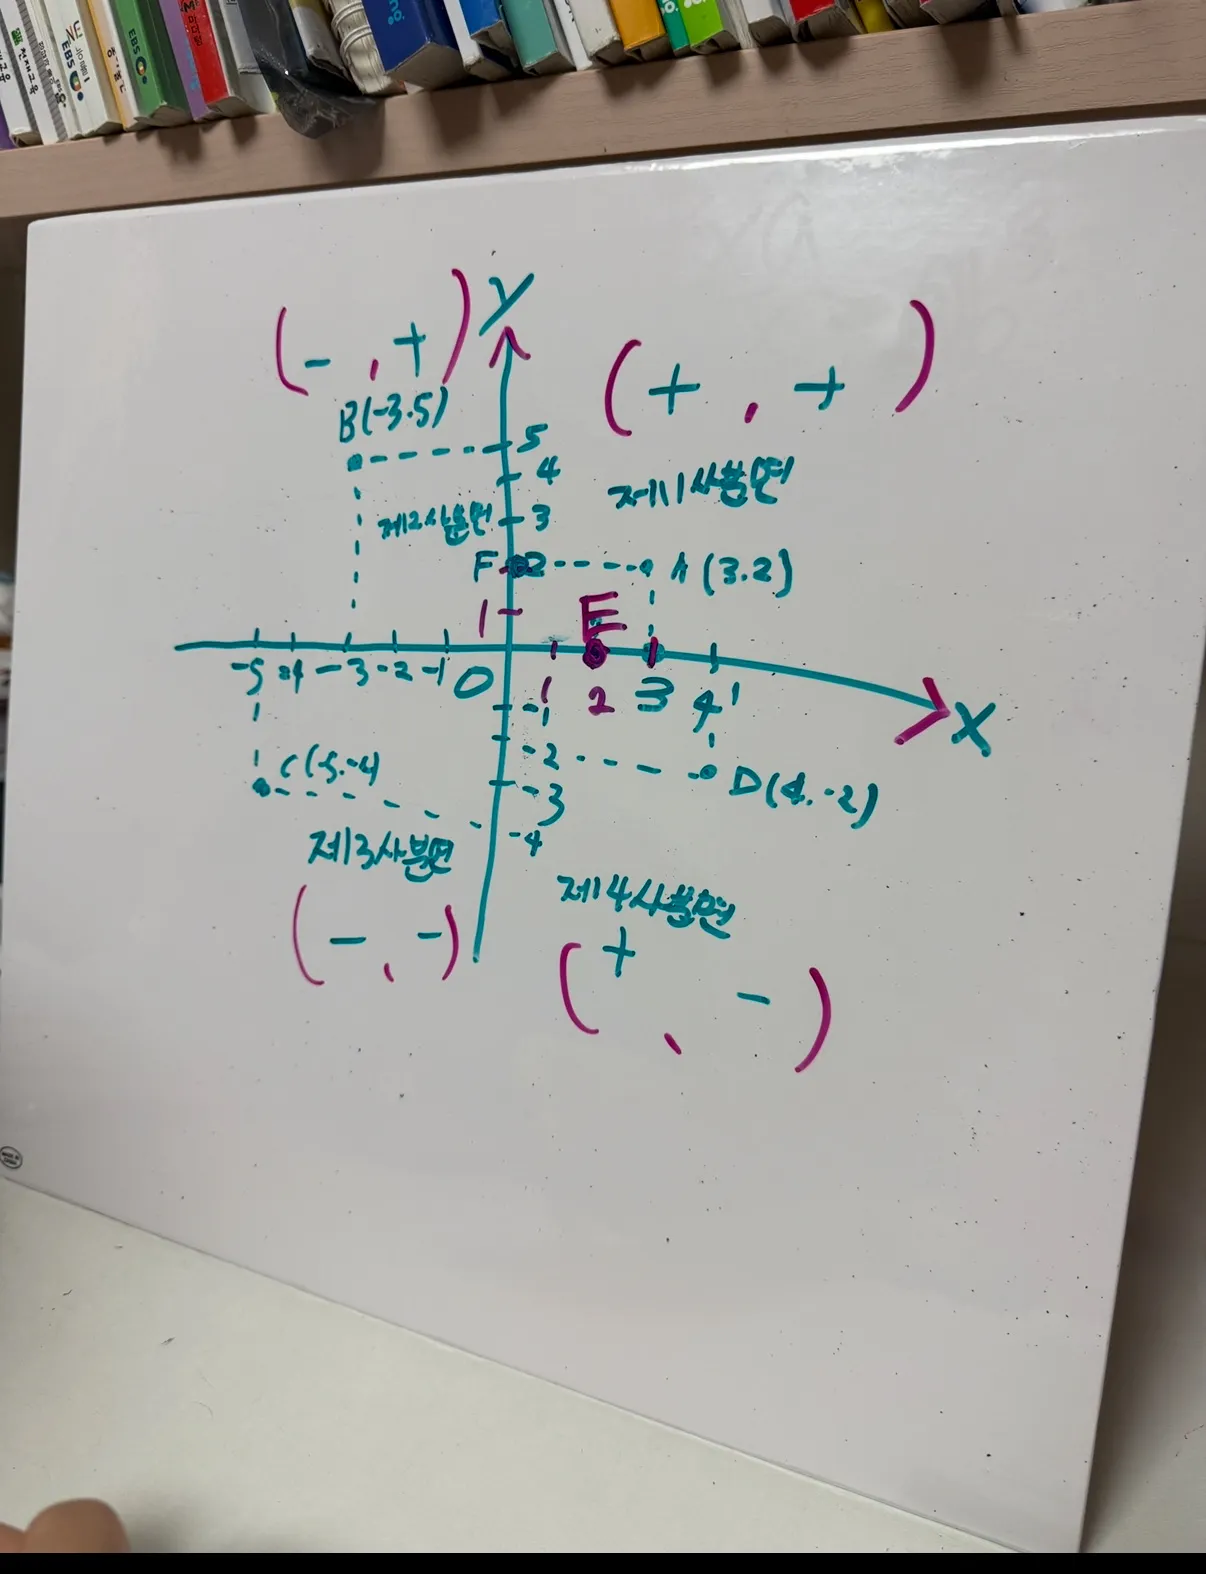 EBS
NE
EBS
( - , + )
Y
( + , + )
B(-3.5)
5
4
제1사분면
제2사분면
3
F
2
A (3.2)
1
E
-5 -4 -3 -2 -1 0
1 2 3 4
X
-1
-2
C(-5.-4)
D(4.-2)
-3
-4
제3사분면
제4사분면
( - , - )
( + , - )